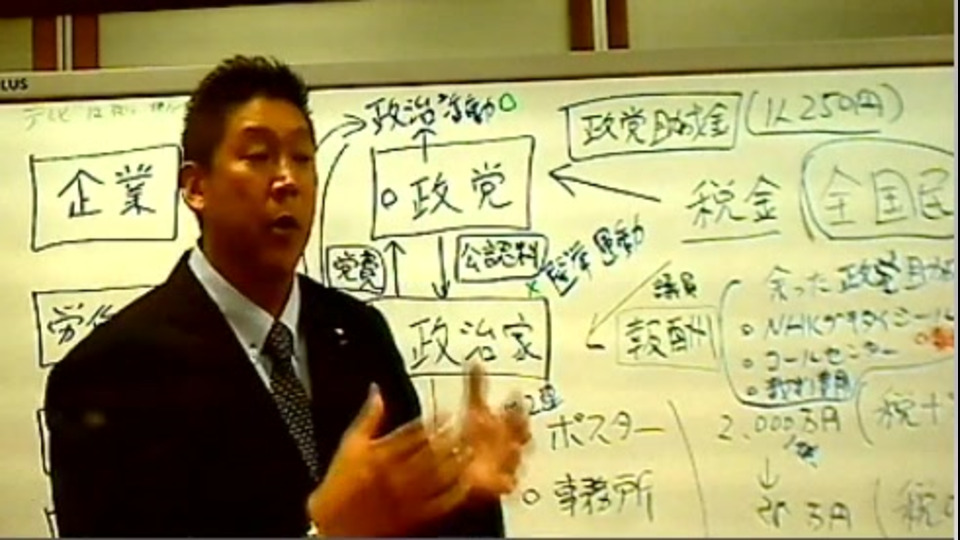 PLUS
テレビは
政治活動○
政党助成金
(1人250円)
企業
○政党
税金
全国民
党費
公認料
×選挙運動
議員
余った政党助成
労
政治家
報酬
○NHKゲキタイシール
○コールセンター
○裁判費用
ポスター
2.000万円
(税
○事務所
万円
(税